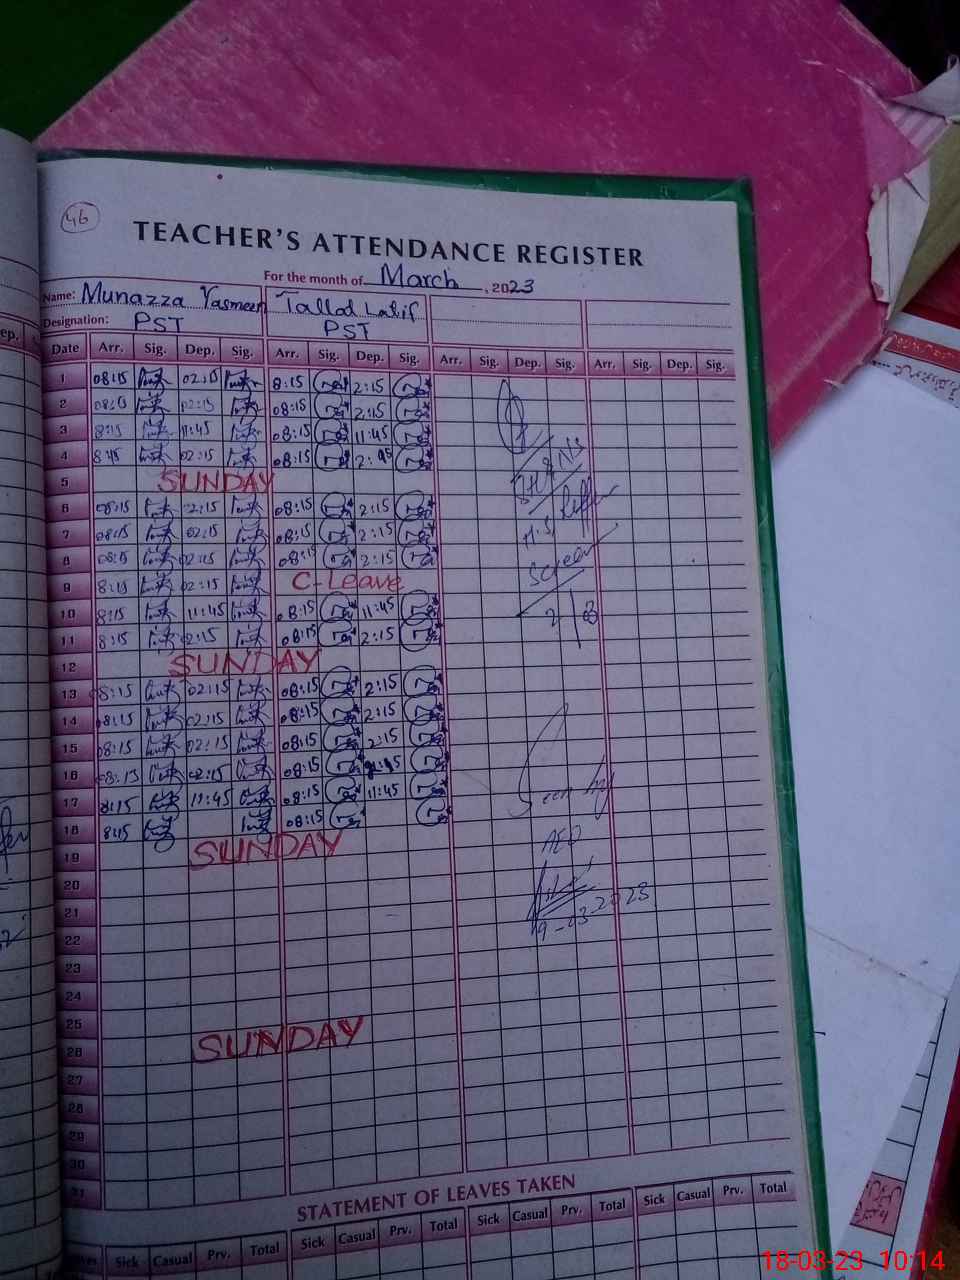 46
TEACHER'S ATTENDANCE REGISTER
For the month of March, 2023
Name: Munazza Yasmeen Tallad Latif
Designation: PST PST
Date Arr. Sig. Dep. Sig. Arr. Sig. Dep. Sig. Arr. Sig. Dep. Sig. Arr. Sig. Dep. Sig.
1 08:15 02:15 8:15 2:15
2 08:15 02:15 08:15 2:15
3 8:15 11:45 08:15 11:45
4 8:15 02:15 08:15
5 SUNDAY
6 08:15 2:15 08:15 2:15
7 08:15 02:15 08:15 2:15
8 08:15 02:15 08:15 2:15
9 8:15 02:15 C-Leave
10 8:15 11:45 08:15 11:45
11 8:15 02:15 08:15 2:15
12 SUNDAY
13 08:15 02:15 08:15 2:15
14 08:15 02:15 08:15 2:15
15 08:15 02:15 08:15 2:15
16 08:15 02:15 08:15
17 8:15 11:45 08:15 11:45
18 8:15 08:15
19 SUNDAY
20
21
22
23
24
25
26 SUNDAY
27
28
29
30
31
Seen by
AEO
9-03-2023
STATEMENT OF LEAVES TAKEN
Sick Casual Prv. Total Sick Casual Prv. Total Sick Casual Prv. Total Sick Casual Prv. Total
18-03-23 10:14